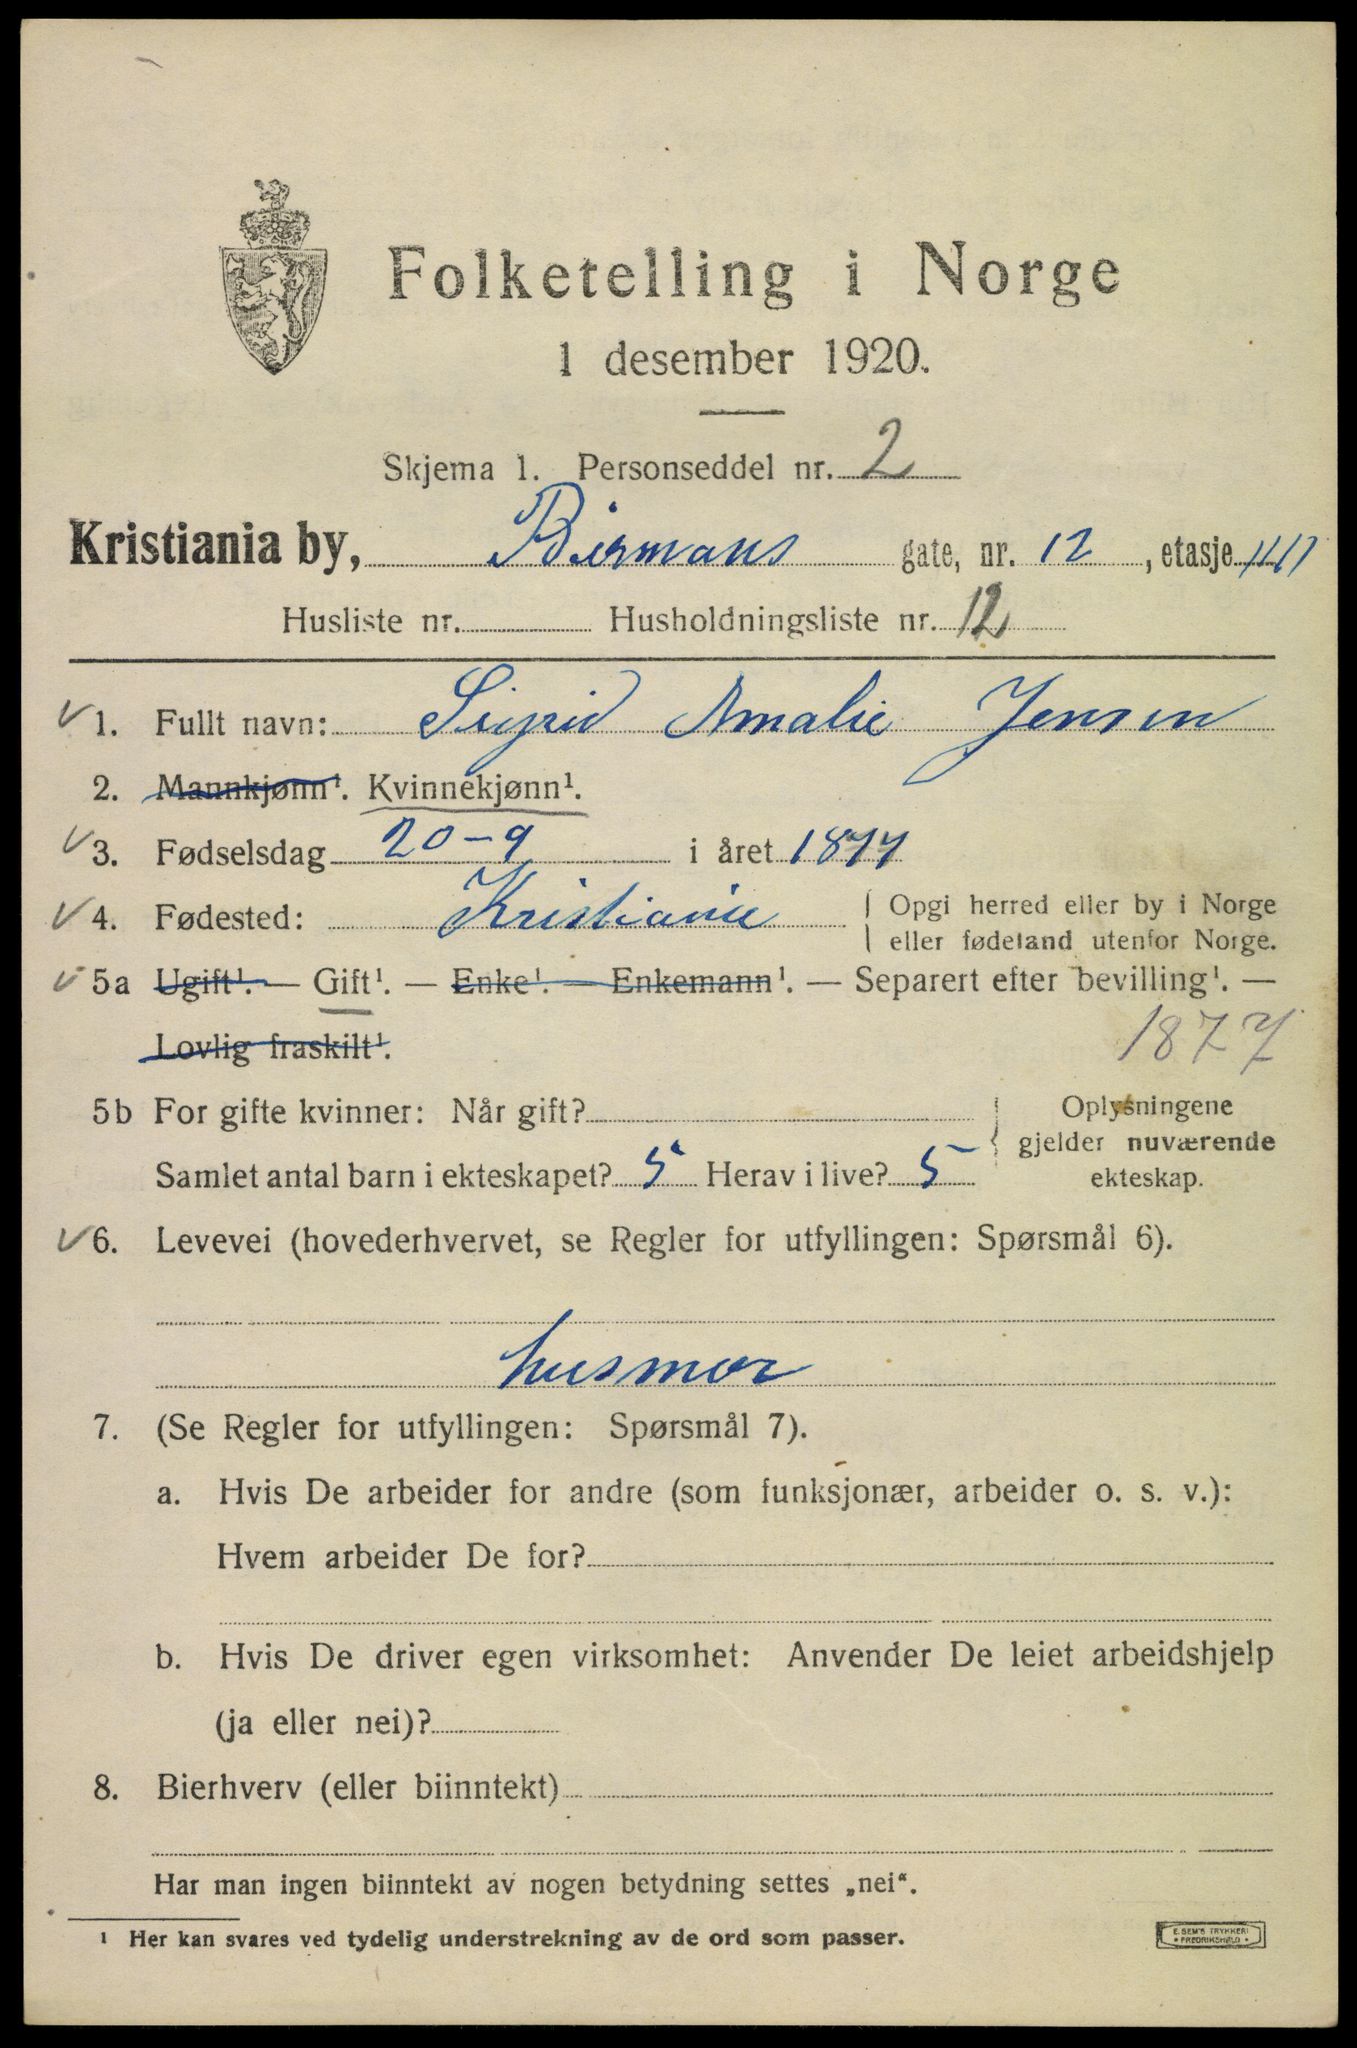 Folketelling i Norge
1 desember 1920.
Skjema 1. Personseddel nr. 2
Kristiania by, Biermans gate, nr. 12, etasje
Husliste nr. Husholdningsliste nr. 12
1. Fullt navn: Sigrid Amalie Jensen
2. Mannkjønn¹. Kvinnekjønn¹.
3. Fødselsdag 20-9 i året 1877
4. Fødested: Kristiania { Opgi herred eller by i Norge
eller fødeland utenfor Norge.
5a Ugift¹. — Gift¹. — Enke¹. — Enkemann¹. — Separert efter bevilling¹. —
Lovlig fraskilt¹.
1877
5b For gifte kvinner: Når gift? Oplysningene
gjelder nuværende
Samlet antal barn i ekteskapet? 5 Herav i live? 5 ekteskap.
6. Levevei (hovederhvervet, se Regler for utfyllingen: Spørsmål 6).
husmor
7. (Se Regler for utfyllingen: Spørsmål 7).
a. Hvis De arbeider for andre (som funksjonær, arbeider o. s. v.):
Hvem arbeider De for?
b. Hvis De driver egen virksomhet: Anvender De leiet arbeidshjelp
(ja eller nei)?
8. Bierhverv (eller biinntekt)
Har man ingen biinntekt av nogen betydning settes „nei“.
¹ Her kan svares ved tydelig understrekning av de ord som passer.
E. SEM'S TRYKKERI
• FREDRIKSHALD •